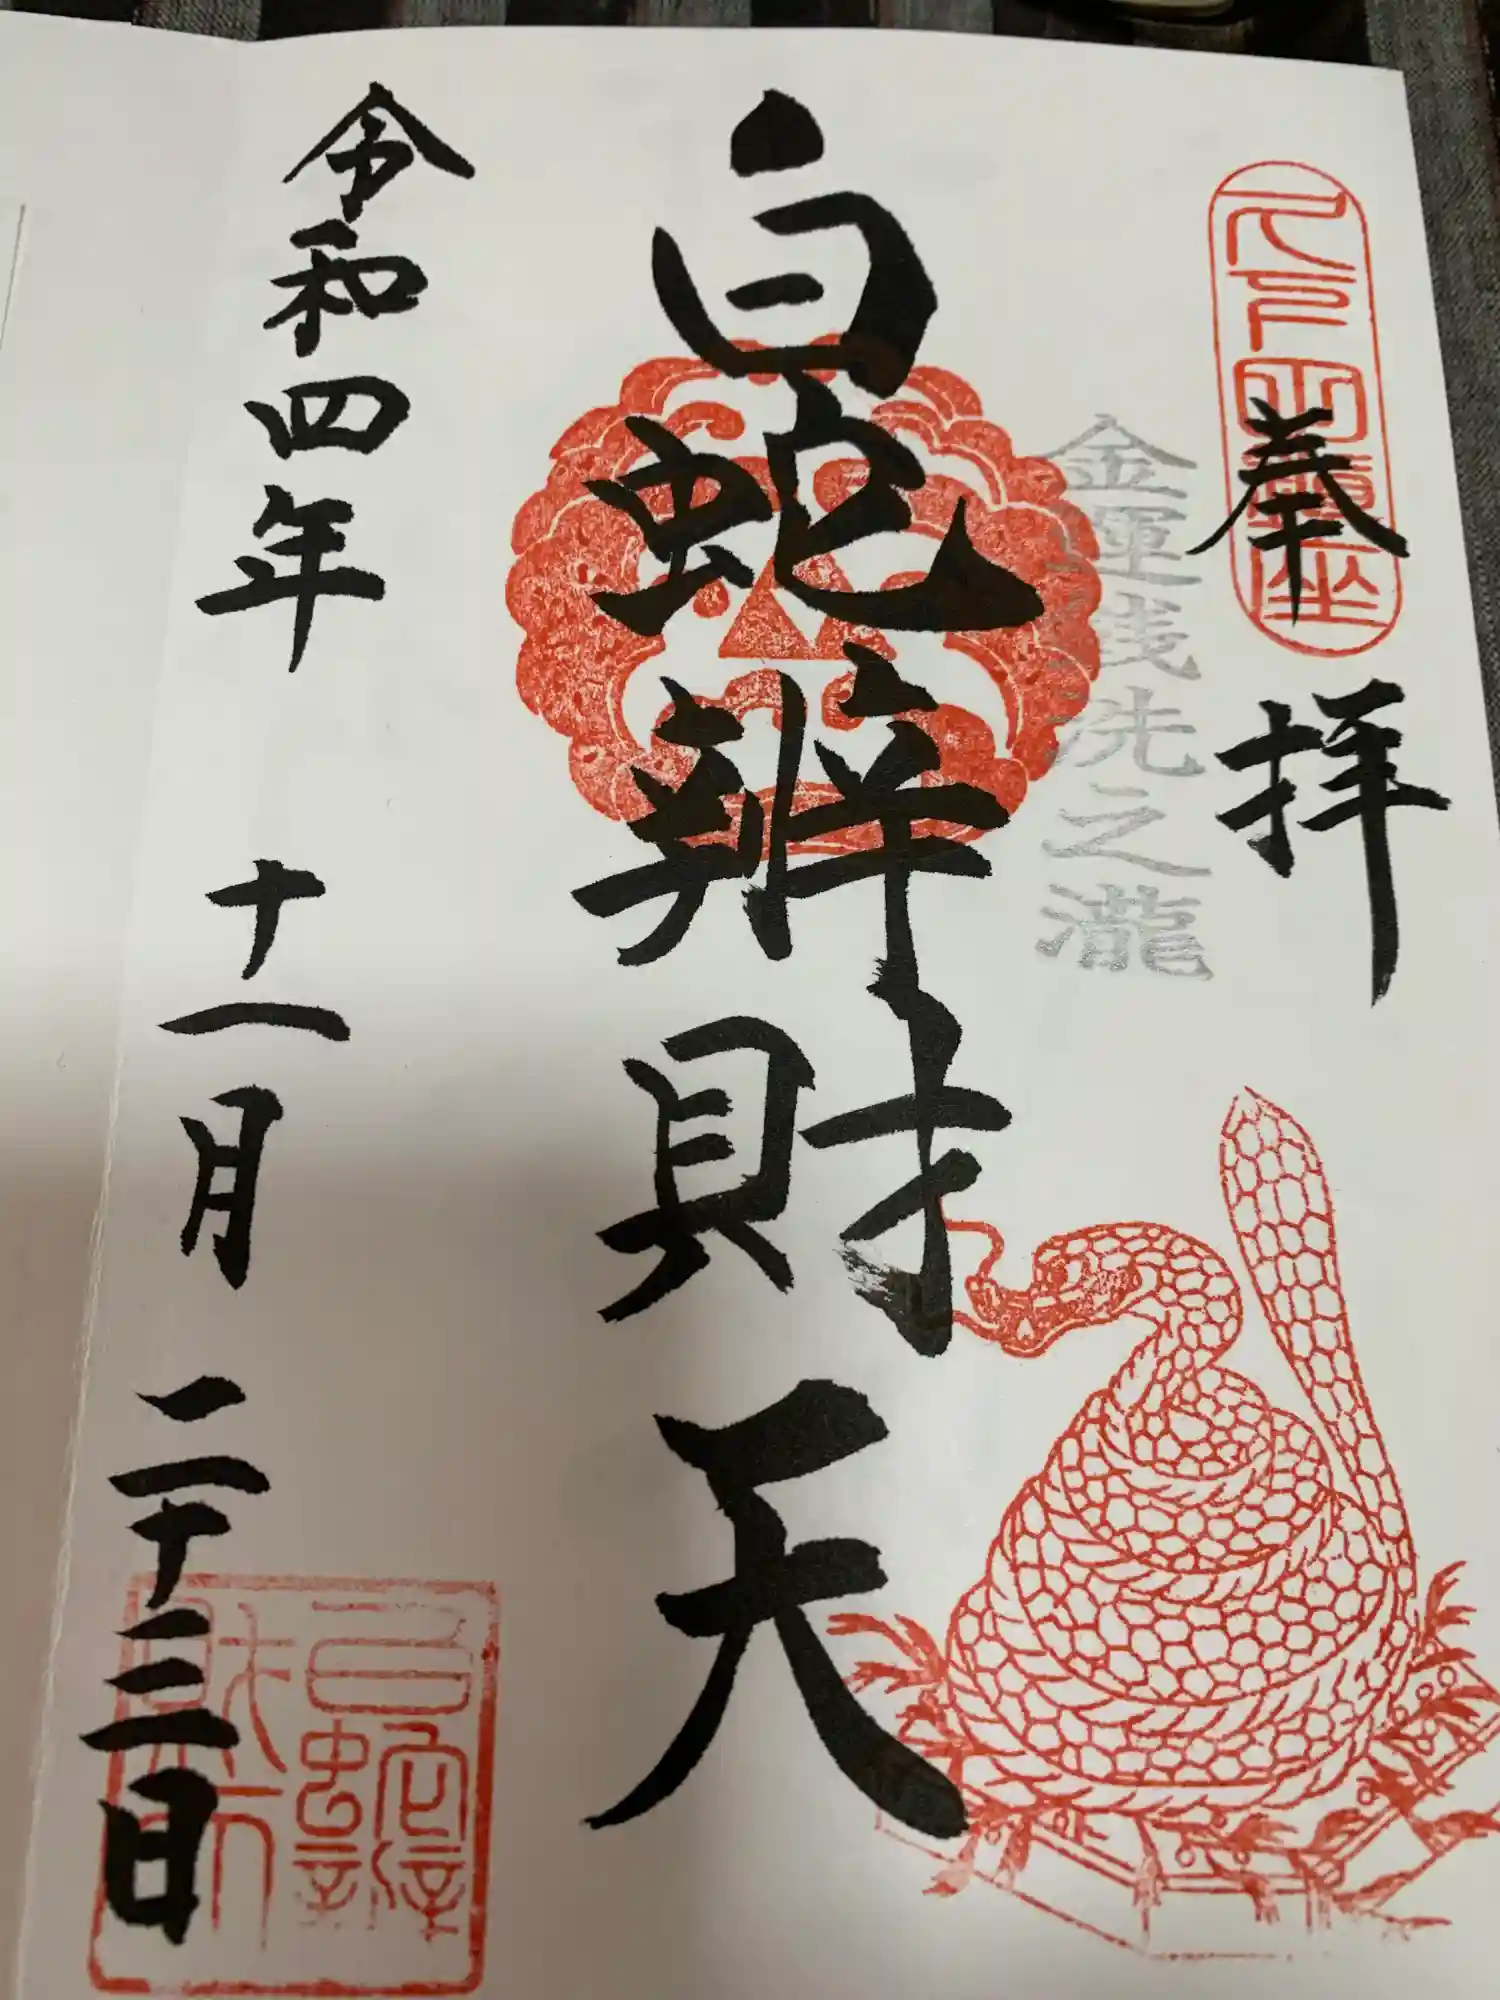 奉拝
金運銭洗之瀧
白蛇辨財天
令和四年十一月二十三日
白蛇辨
財天